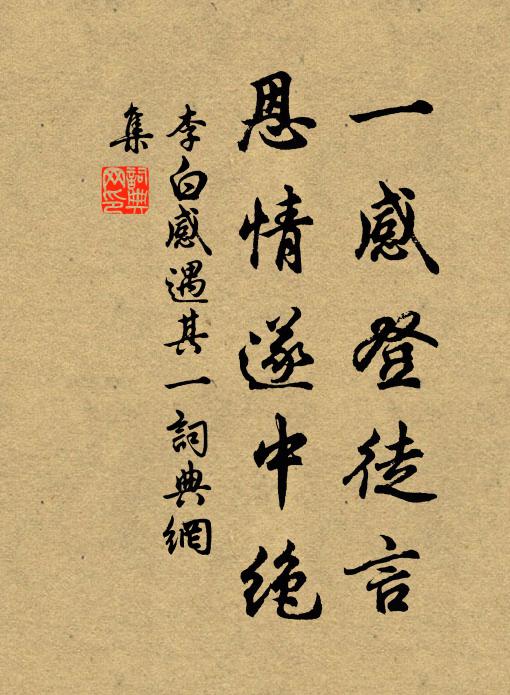 一感登徒言
恩情遂中绝
李白感遇其一詞典網
集
詞典网印